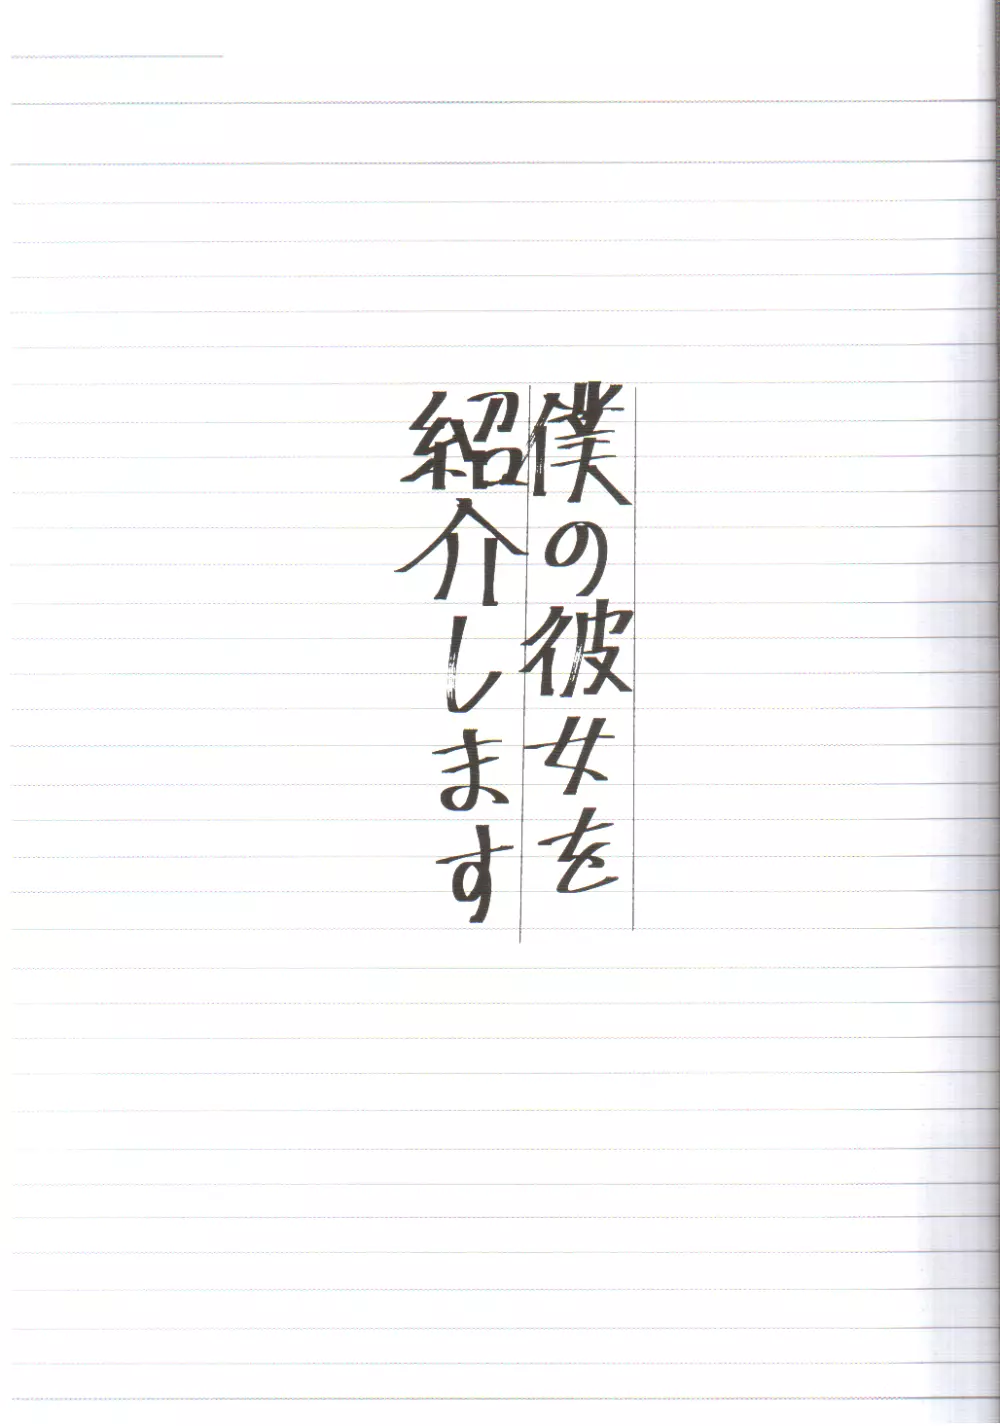 僕の彼女を
紹介します